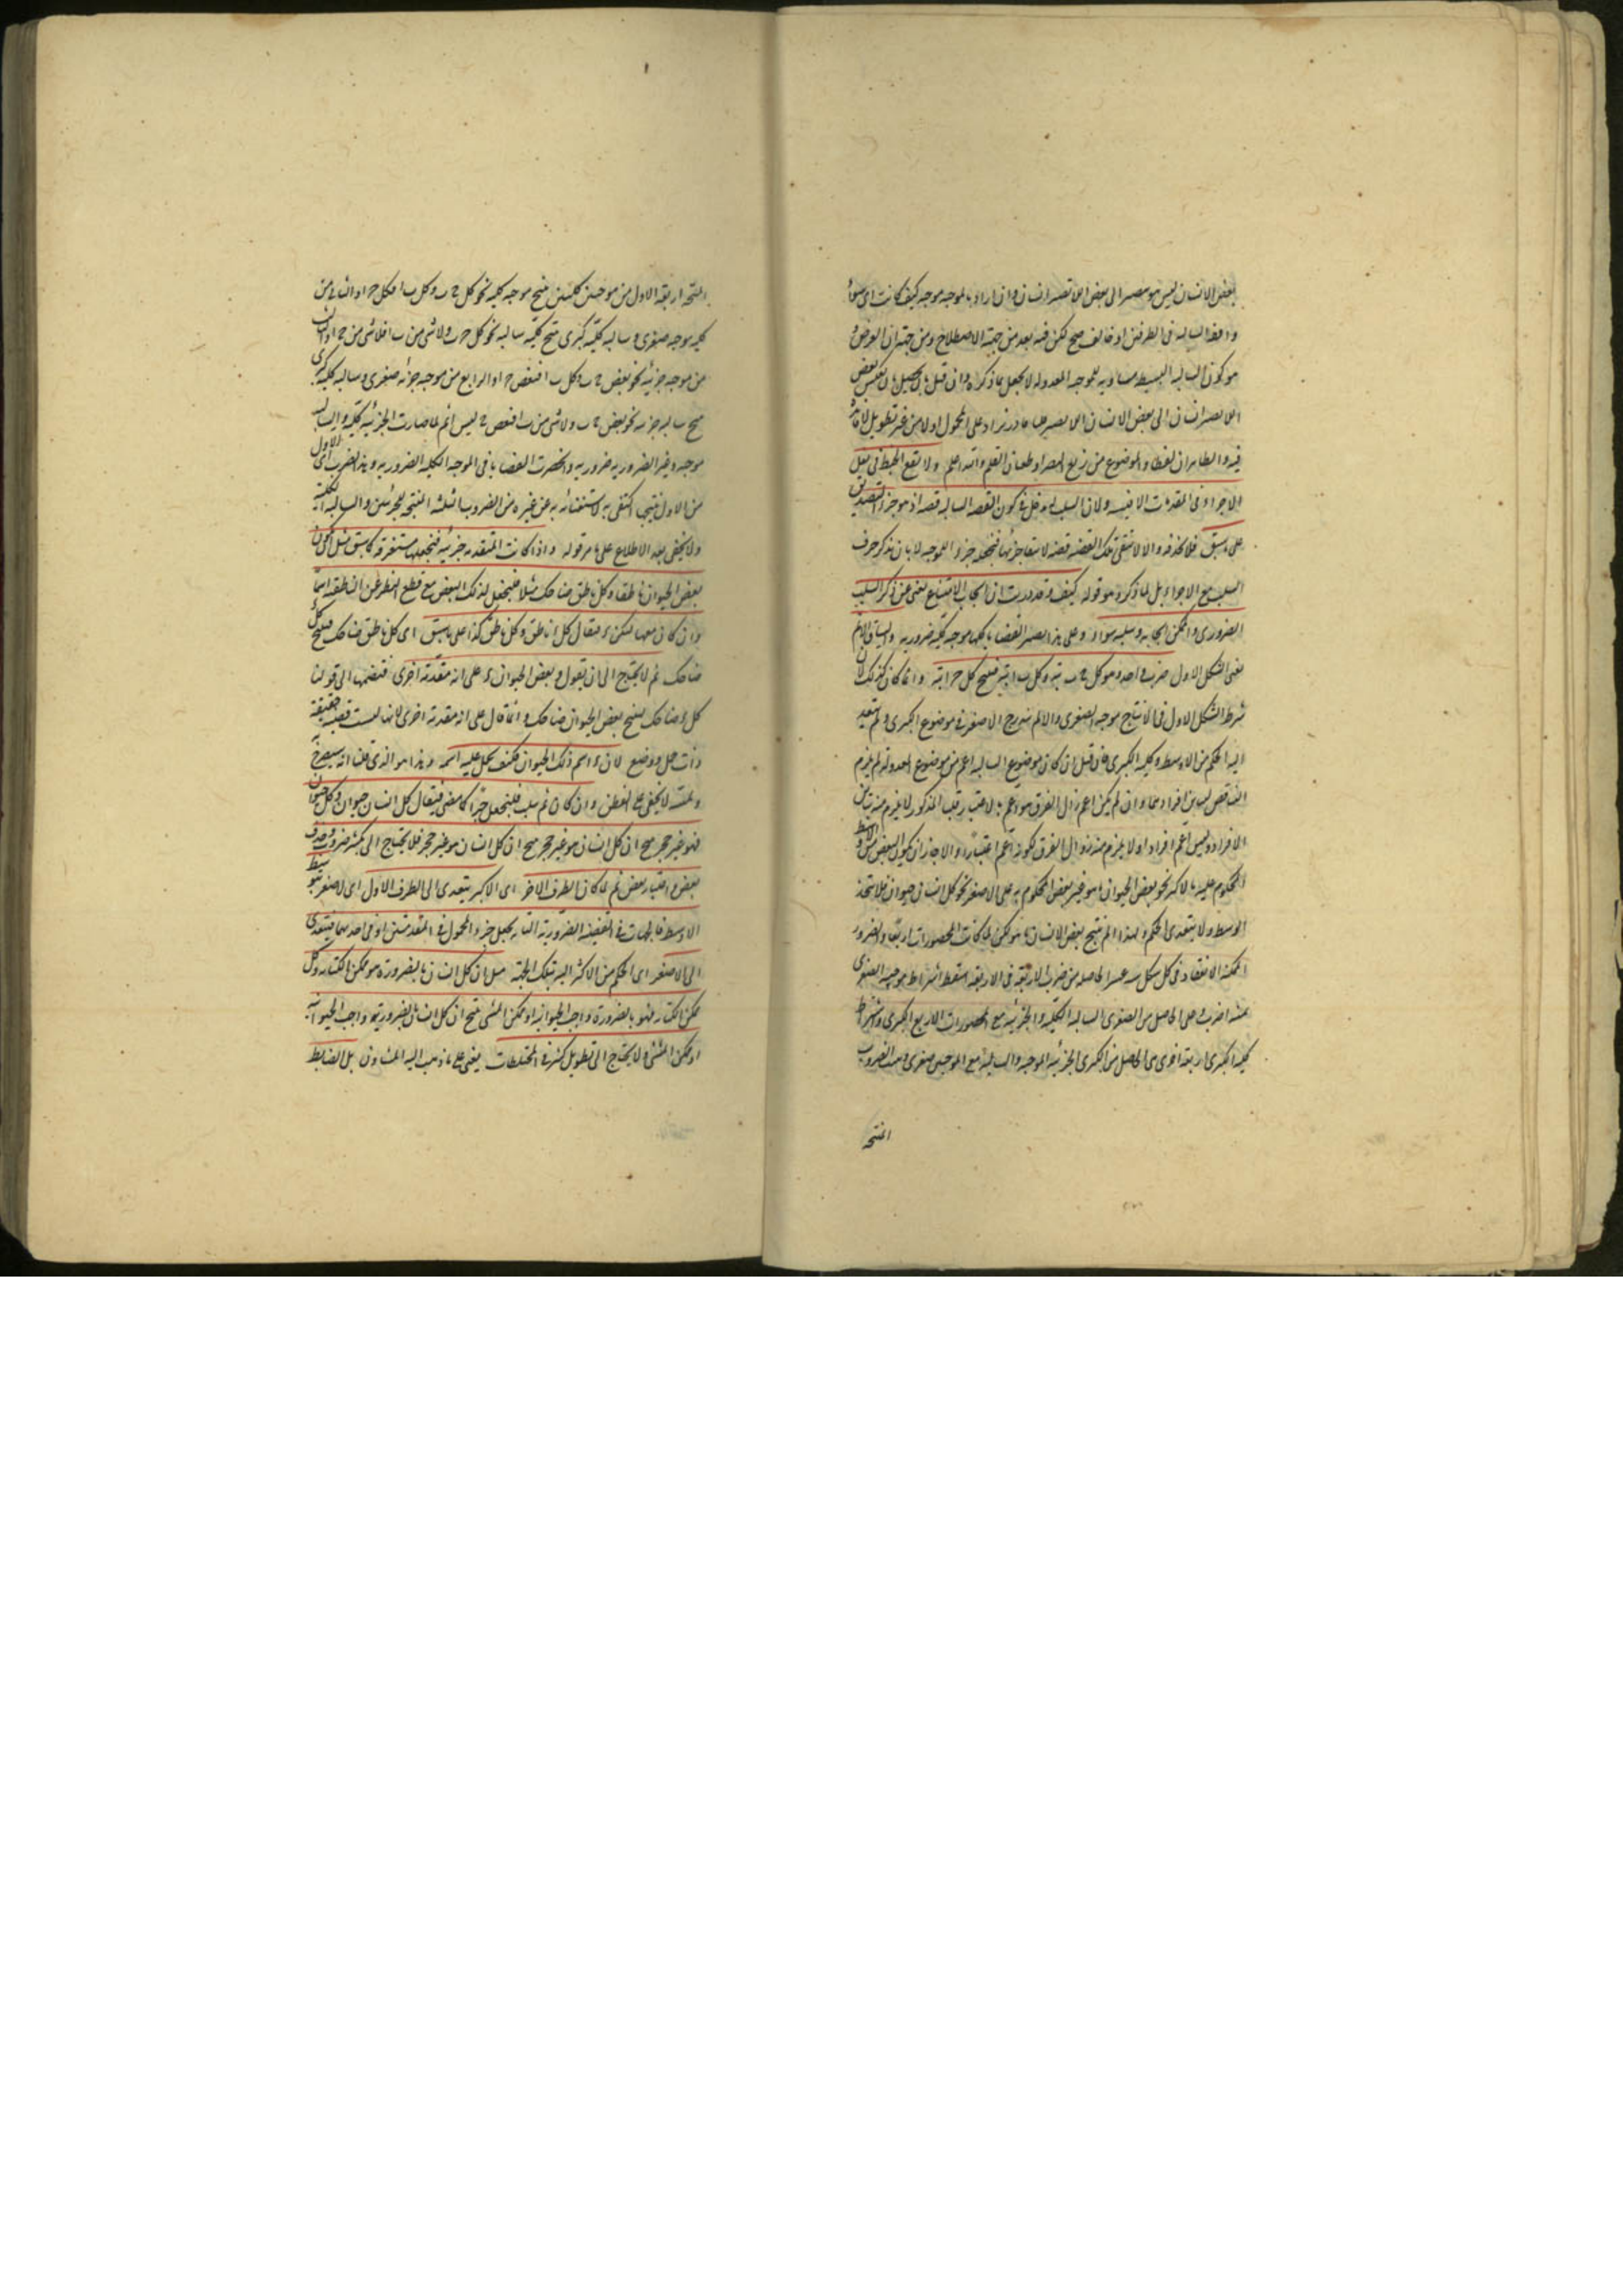 بعض الانسان ليس هو بصير الى بعض اللا بصير انسان وان اراد بالموجبه موجبه كيف كانت اى سواء
وافق السالبه فى الطرفين او خالف صح لكن فيه بعد من جهة الاصطلاح ومن جهة ان الغرض
هو كون السالبه البسيطه مساويه للموجبه المعدوله لا يحصل بما ذكراه وان قيل بل يحصل بان يعكس بعض
اللا بصير انسان الى بعض الانسان اللا بصير على الموضوع اولا من غير تطويل
والموضوع من زيغ البصر او طغيان القلم والله اعلم ولا يقع الخبط فى نقل
الاجزاء فى المقدمات الاقيسه ولان السلب له مدخل فى كون القضيه السالبه قضيه اذ هو جزء التصديق
على ما سبق فلا نحذفه والا لانتفى تلك القضيه قضيه لانتفاء جزئها فنجعله جزء الموجبه لا بان نذكر حرف
السلب مع الاجزاء بل لما ذكره وهو قوله كيف وقد دريت ان ايجاب الامتناع يغنى عن ذكر السلب
الضرورى والممكن ايجابه وسلبه سواء وعلى هذا يصير القضايا كلها موجبه كليه ضروريه والسياق الاتم
يعنى الشكل الاول ضرب واحد وهو كل ج ب بته وكل ب ا بته فينتج كل ج ا بته وانما كان كذلك لان
شرط الشكل الاول فى الانتاج موجبه الصغرى والا لم يندرج الاصغر فى موضوع الكبرى ولم يتعد
اليه الحكم من الاوسط وكليه الكبرى فان قيل ان كان موضوع السالبه اعم من موضوع المعدوله لم يلزم
التناقض لتباين افرادهما وان لم يكن اعم زال الفرق هو اعم بالاعتبار المذكور لا يلزم منه تباين
الافراد وليس اعم افرادا ولا يلزم منه زوال الفرق لكونه اعم اعتبارا والا جاز ان يكون البعض من الاوسط
المحكوم عليه بالاكبر نحو بعض الحيوان ما هو غير بعض المحكوم به على الاصغر نحو كل انسان حيوان فلا يتحد
الوسط ولا يتعدى الحكم ولهذا لم ينتج بعض الانسان لكن لما كانت المحصورات اربعا والضروب
الممكنة الانعقاد فى كل شكل سته عشر الحاصله من ضرب الاربعة فى الاربعه اسقط اشتراط موجبيه الصغرى
ثمنيه اضرب اعنى الحاصل من الصغرى السالبه الكليه والجزئيه مع المحصورات الاربع الكبرى واشتراط
كليه الكبرى اربعه اخرى هى الحاصل من الكبرى الجزئيه الموجبه والسالبه مع الموجبتين صغرى وبقيت الضروب
المنتجه
المنتجه اربعة الاول من موجبتين كليتين ينتج موجبه كليه نحو كل ج ب وكل ب ا فكل ج ا والثانى من
كليه موجبه صغرى وسالبه كليه كبرى ينتج كليه سالبه نحو كل ج ب ولا شى من ب ا فلا شى من ج ا والثالث
من موجبه جزئيه نحو بعض ج ب وكل ب ا فبعض ج ا والرابع من موجبه جزئيه صغرى وسالبه كليه كبرى
ينتج سالبه جزئيه نحو بعض ج ب ولا شى من ب ا فبعض ج ليس ا ثم لما صارت الجزئيه كليه والسالبه
موجبه وغير الضروريه ضروريه وانحصرت القضايا فى الموجبه الكليه الضروريه وهذا الضرب اى الاول
من الاول ينتجها اكتفى به لاستغنائه به عن غيره من الضروب الثلثه المنتجه للجزئيتين والسالبه الكليه
ولا يخفى بعد الاطلاع على ما مر قوله واذا كانت المقدمه جزئيه فنجعلها مستغرقه كما سبق مثل ان يكون
بعض الحيوان ناطقا وكل ناطق ضاحك مثلا فلنجعل لذلك البعض مع قطع النظر عن الناطقيه اسما
وان كان معها وليكن د فيقال كل د ناطق وكل ناطق كذا على ما سبق اى كل ناطق ضاحك فينتج كل د
ضاحك ثم لا يحتاج الى ان نقول وبعض الحيوان د على انه مقدمة اخرى فنضمها الى قولنا
كل د ضاحك لينتج بعض الحيوان ضاحك وانما قال على انه مقدمة اخرى لانها ليست قضيه حقيقة
ذات حمل ووضع لان د اسم ذلك الحيوان فكيف يحمل عليه اسمه وهذا هو الذى قلنا انه سيصرح
ولمته لا يخفى على الفطن وان كان ثم سلب فلنجعل جزءا كما مضى فيقال كل انسان حيوان وكل حيوان
فهو غير حجر ينتج ان كل انسان هو غير حجر فلا يحتاج الى تكثير ضروب وحذف
بعض واعتبار بعض ثم لما كان الطرف الاخر اى الاكبر يتعدى الى الطرف الاول اى الاصغر بتوسط
الاوسط فالجهات فى القضيه الضروريه البتاته يجعل جزء المحمول فى المقدمتين او فى احديهما فيتعدى
الى الاصغر اى الحكم من الاكبر اليه بتلك الجهة مثل ان كل انسان بالضرورة هو ممكن الكتابه وكل
ممكن الكتابه فهو بالضرورة واجب الحيوانيه او ممكن المشى ينتج ان كل انسان بالضرورة واجب الحيوانيه
او ممكن المشى ولا يحتاج الى تطويل كثير فى المختلطات يعنى على ما ذهب اليه المشاؤن بل الضابط